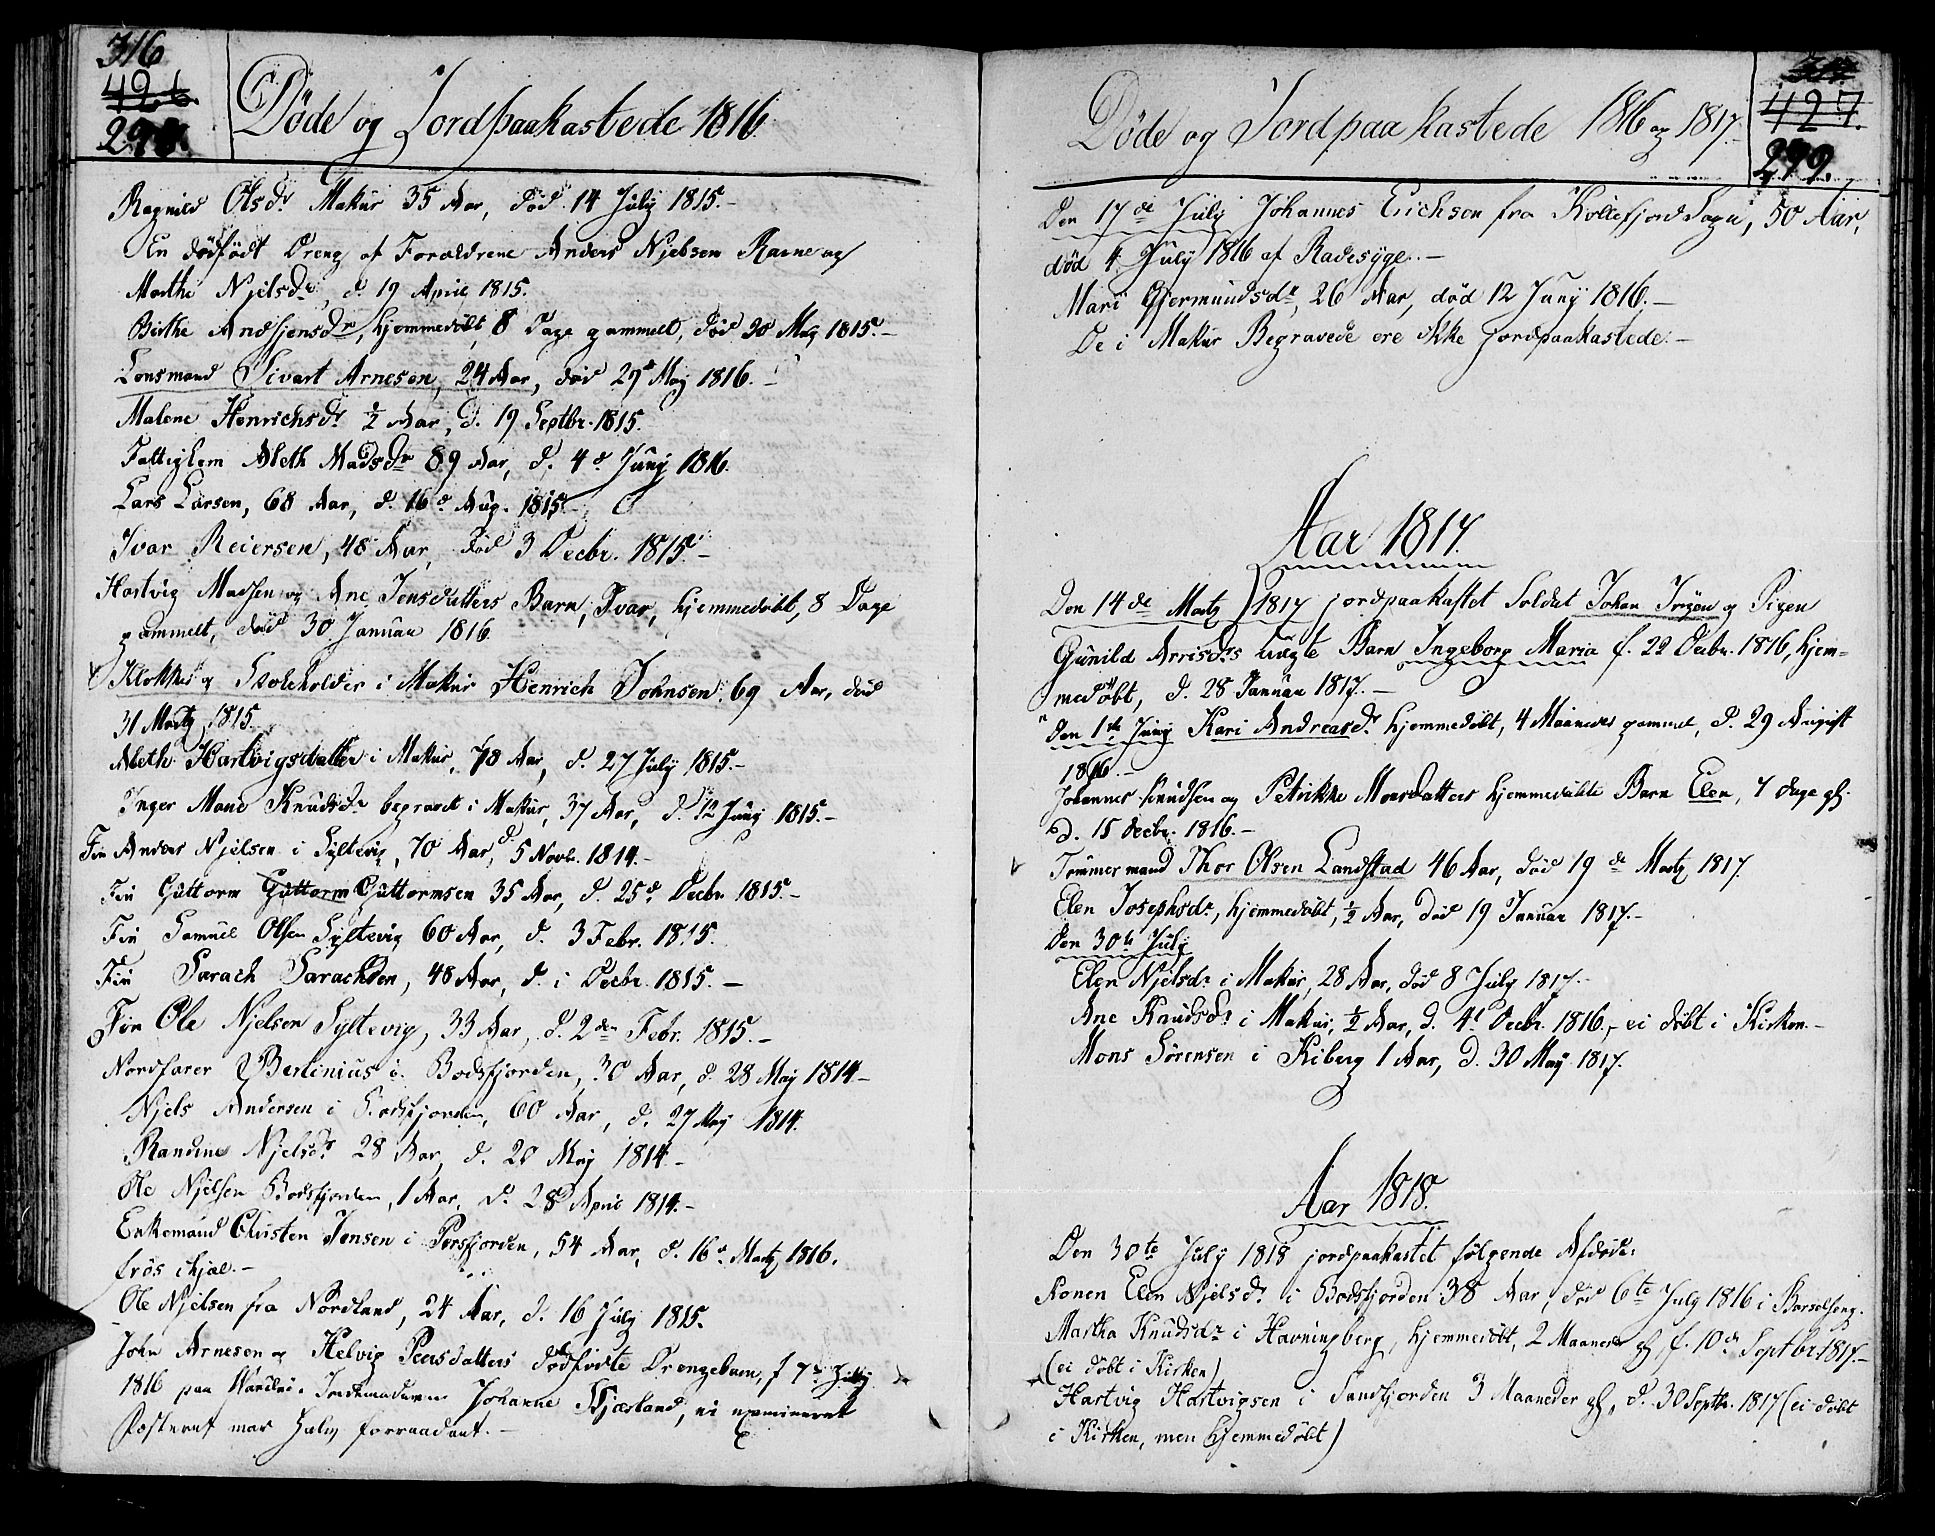 316
426.
298.
Döde og Jordpaakastede 1816
Ragnild Olsdr Makur 35 Aar, död 14 July 1815.-
En dödfödt Dreng af Forældrene Anders Njelsen og
Marthe Njelsdr, d. 19 April 1815.
Birthe hjemmedöbt, 8 Dage gammelt, död 20 May 1815.-
Lensmand Sivert Arnesen, 24 Aar, död 29d May 1816.-
Malene Henrichsdr ½ Aar, d. 19 Septbr. 1815.
Fattiglem Aleth Madsdr 89 Aar, d. 4d Juny 1816.
Lars Larsen, 68 Aar, d. 16d Aug. 1815.-
Ivar Reiersen, 48 Aar, död 3 Decbr. 1815.-
Hartvig Madsen og Ane Jensdatters Barn, Ivar, hjemmedöbt, 8 Dage
gammelt, död 30 Januar 1816.
Klokker og Skoleholder i Makur Henrich Johnsen, 69 Aar, död
31 Martz 1815.
Aleth Hartvigsdatter i Makur, 78 Aar, d. 27 July 1815.-
Inger Mane Knudsdr begravet i Makur, 37 Aar, d. 12 Juny 1815.-
Fin Anders Njelsen i Syltevig, 70 Aar, d. 5 Novbr. 1814.-
Fin Guttorm Guttorm Guttormsen 35 Aar, d. 25d Decbr 1815.-
Fin Samuel Olsen Syltevig 60 Aar, d. 3 Febr. 1815.
Fin Sarach Sarachsen, 48 Aar, d. i Decbr. 1815.-
Fin Ole Njelsen Syltevig, 33 Aar, d. 2den Febr. 1815.-
Nordfarer Berlinius i Bodsfjorden, 30 Aar, d. 28 May 1814-
Njels Andersen i Bodsfjorden, 60 Aar, d. 27 May 1814.
Randine Njelsdr 28 Aar, d. 20 May 1814.-
Ole Njelsen Bodsfjorden, 1 Aar, d. 28 April 1814.-
Enkemand Christen Jensen i Persfjorden, 54 Aar, d. 16d Martz 1816.
frös ihjæl.-
Ole Njelsen fra Nordland, 24 Aar, d. 16 July 1815.
John Arnesen og Helvig Peersdatters dödfödte Drengebarn, f 7de July
1816 paa Wardöe. Jordemoderen Johanne Kjærland, ei examineret
var forraadnet.-
427.
299.
Döde og Jordpaakastede 1816 og 1817.
Den 17de July Johannes Erichsen fra Kollefjord Sogn, 50 Aar,
död 4 July 1816 af Radesyge.-
Mari Gjermundsdr, 26 Aar, död 12 Juny 1816.-
De i Makur Begravede ere ikke jordpaakastede.-
Aar 1817.
Den 14de Martz 1817 jordpaakastet Soldat Johan og Pigen
Gunild uægte Barn Ingeborg Maria f. 22 Decbr. 1816, hjem-
medöbt, d. 28 Januar 1817.-
Den 1ste Juny Kari Andreasdr hjemmedöbt, 4 Maaneder gammel, d. 29 August
1816.-
Johannes Knudsen og Petrikke Monsdatters hjemmedöbte Barn Elen, 7 Dage gl.
d. 15 Decbr. 1816.-
Tömmermand Thor Olsen Landstad 46 Aar, död 19de Martz 1817.
Elen Josephsdr, hjemmedöbt, ½ Aar, död 19 Januar 1817.-
Den 30te July
Elen Njelsdr i Makur, 28 Aar, död 8 July 1817.-
Ane Knudsdr i Makur, ½ Aar, d. 4d Decbr. 1816,- ei döbt i Kirken.-
Mons Sörensen i Kiberg 1 Aar, d. 30 May 1817.
Aar 1818.
Den 30te July 1818 jordpaakastet fölgende Afdöde:
Konen Elen Njelsdr i Bodsfjorden 38 Aar, död 6te July 1816 i Barselseng.
Martha Knudsdr i Havningberg, hjemmedöbt, 2 Maaneder gl, f. 10de Septbr 1817.-
(ei döbt i Kirken)
Hartvig Hartvigsen i Sandfjorden 3 Maaneder gl, d. 30 Septbr. 1817 (ei döbt
i Kirken, men hjemmedöbt)